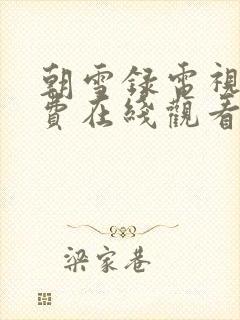 朝雪録電視
費在綫觀看
梁家巷